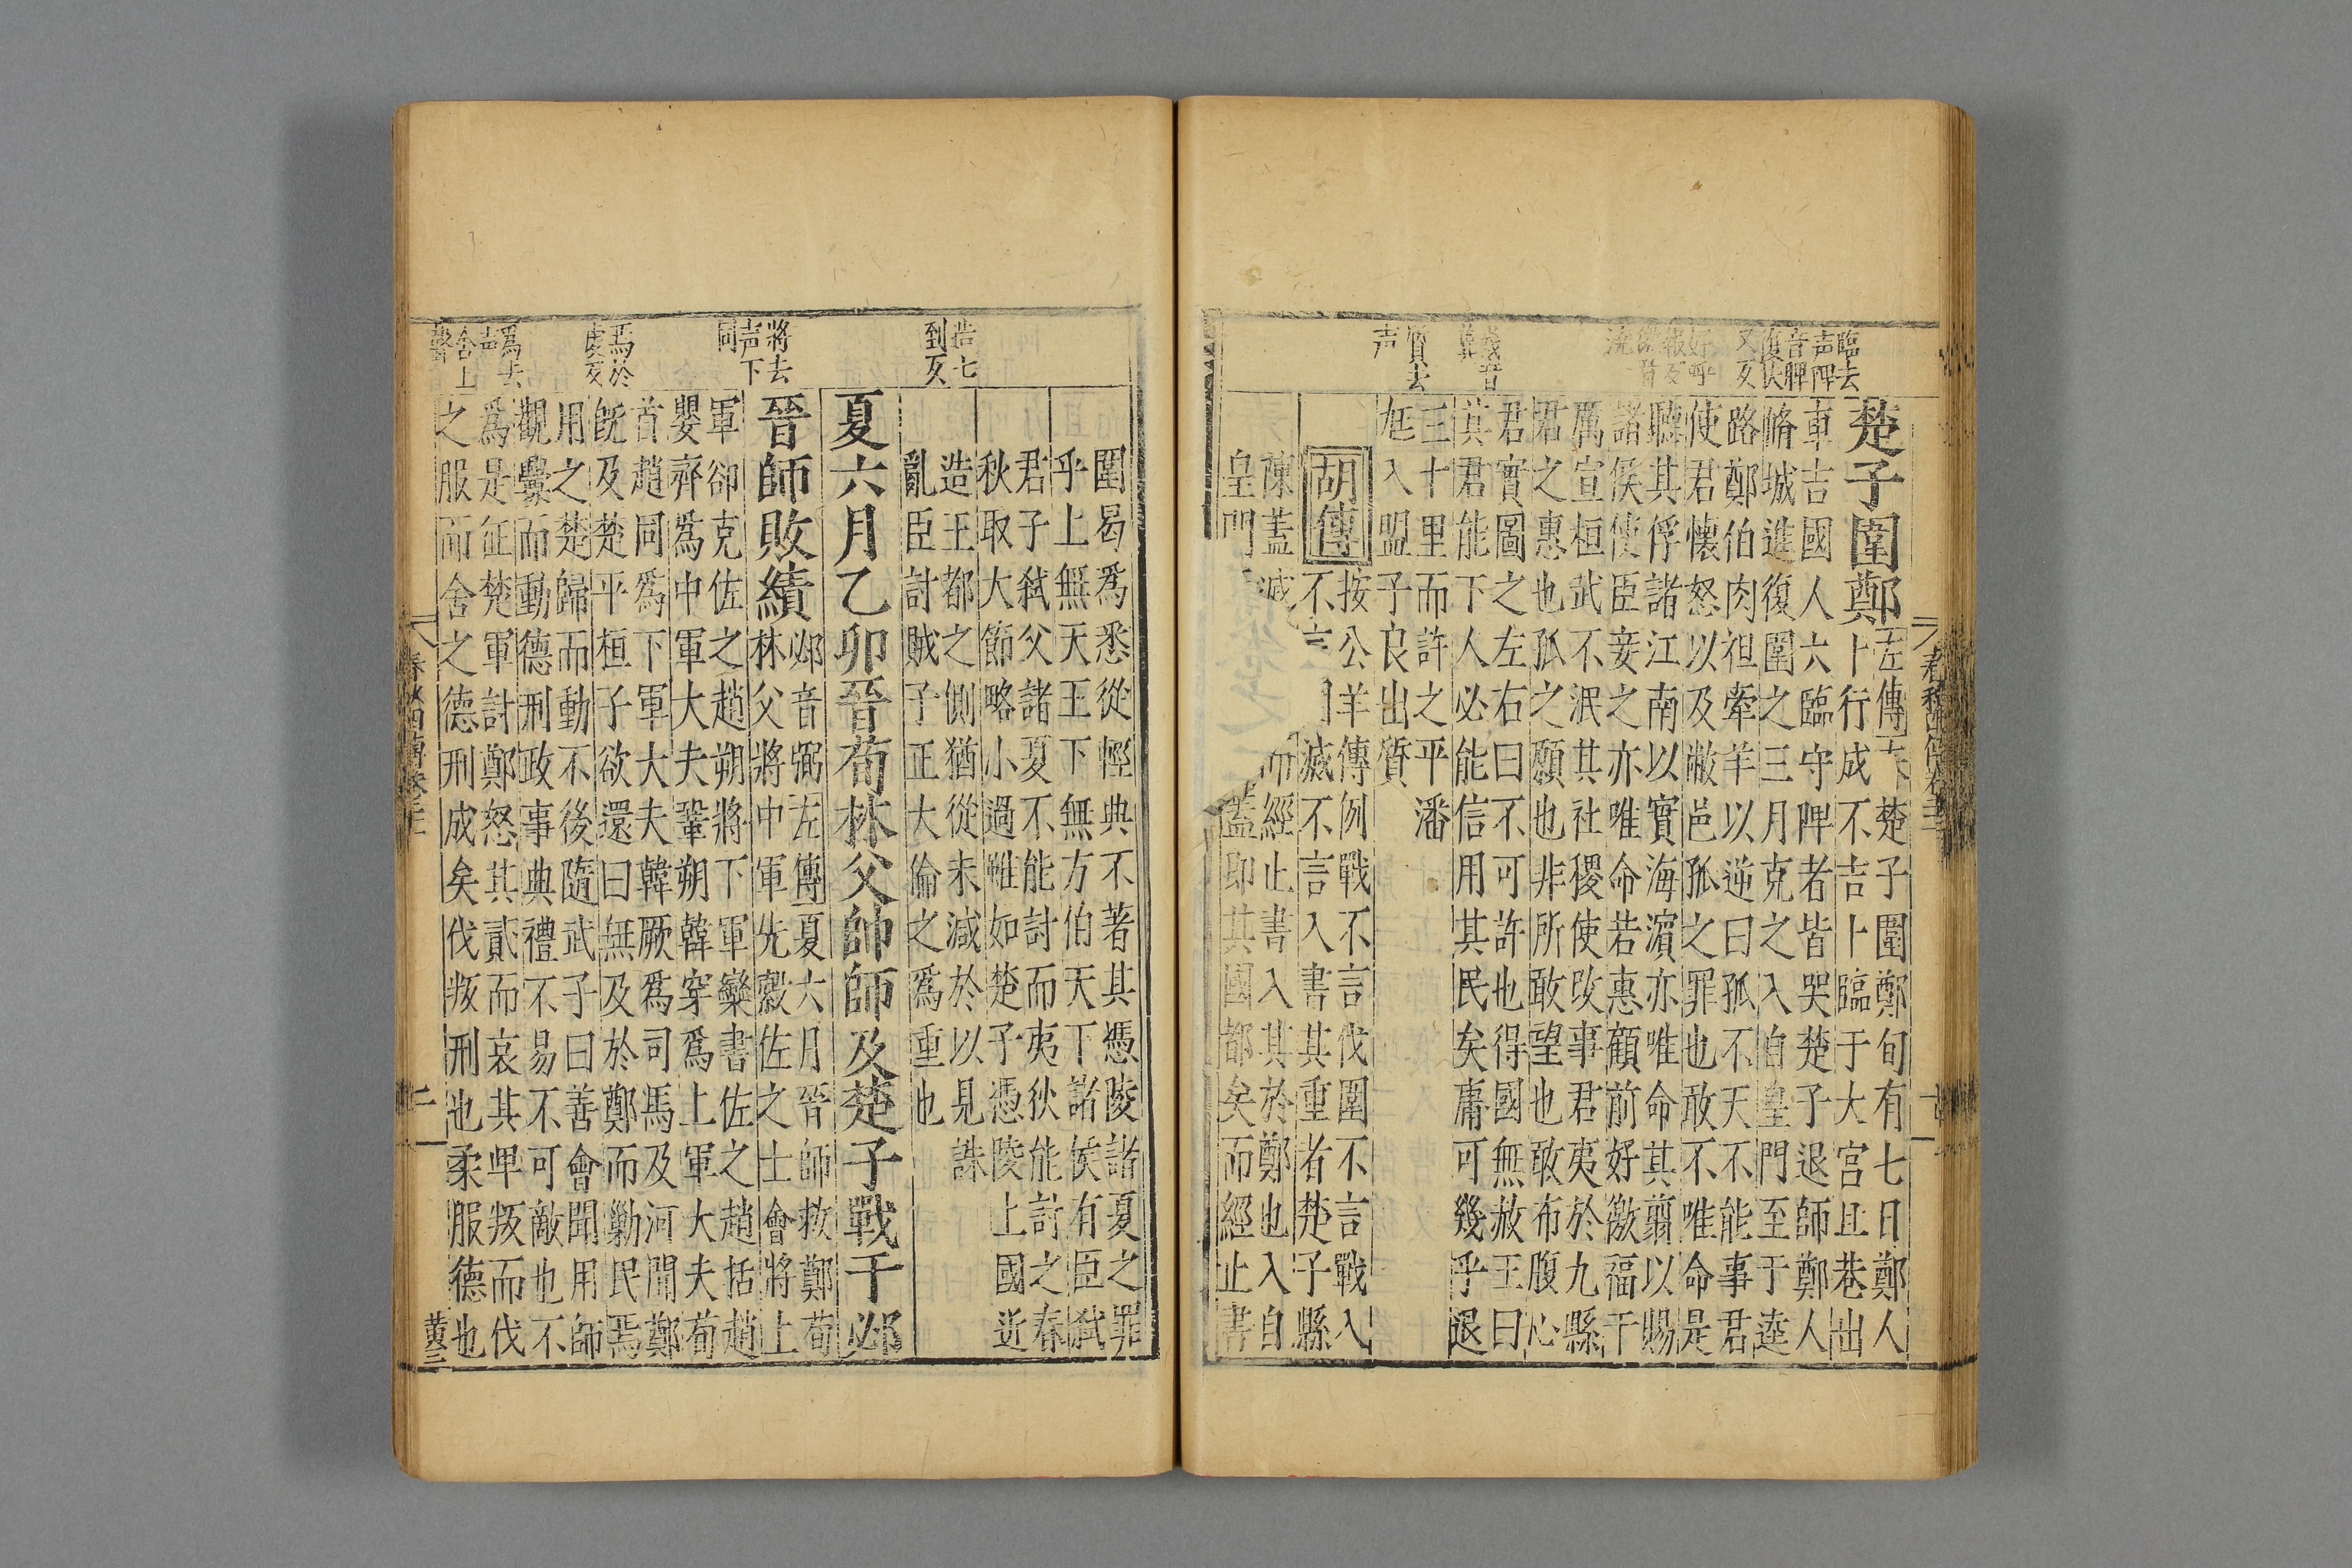 臨去
声陴
音脾
復扶
又反
好呼
報反
徼音
幾音
質去
声
楚子圍鄭
左傳 楚子圍鄭旬有七日鄭人
卜行成不吉卜臨于大宮且巷出
車吉國人六臨守陴者皆哭楚子退師鄭人
脩城進復圍之三月克之入自皇門至于逵
路鄭伯肉袒牽羊以逆曰孤不天不能事君
使君懷怒以及敝邑孤之罪也敢不唯命是
聽其俘諸江南以實海濵亦唯命其翦以賜
諸侯使臣妾之亦唯命若惠顧前好徼福于
厲宣桓武不泯其社稷使改事君夷於九縣
君之惠也孤之願也非所敢望也敢布腹心
君實圖之左右曰不可許也得國無赦王曰
其君能下人必能信用其民矣庸可幾乎退
三十里而許之平潘
尪入盟子良出質
胡傳
按公羊傳例戰不言伐圍不言戰入
不言滅不言入書其重者楚子縣
陳蓋滅 而經止書入其於鄭也入自
皇門 蓋即其國都矣而經止書
造七
到反
將去
声下
同
焉於
虔反
爲去
声
舍上
聲
圍曷爲悉從輕典不著其憑陵諸夏之罪
乎上無天王下無方伯天下諸侯有臣弒
君子弒父諸夏不能討而夷狄能討之春
秋取大節略小過雖如楚子憑陵上國近
造王都之側猶從末減於以見誅
亂臣討賊子正大倫之爲重也
夏六月乙卯晉荀林父帥師及楚子戰于邲
晉師敗績
邲音弼左傳夏六月晉師救鄭荀
林父將中軍先縠佐之士會將上
軍郤克佐之趙朔將下軍欒書佐之趙括趙
嬰齊爲中軍大夫鞏朔韓穿爲上軍大夫荀
首趙同爲下軍大夫韓厥爲司馬及河聞鄭
旣及楚平桓子欲還曰無及於鄭而勦民焉
用之楚歸而動不後隨武子曰善會聞用師
觀釁而動德刑政事典禮不易不可敵也不
爲是征楚軍討鄭怒其貳而哀其卑叛而伐
之服而舍之德刑成矣伐叛刑也柔服德也